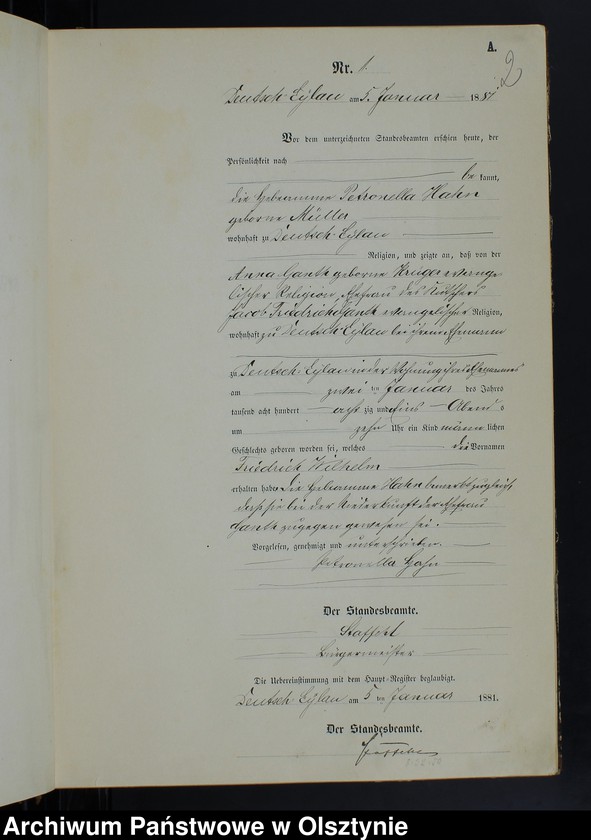 A.
2
Nr. 1.
Deutsch-Eylau am 5. Januar 1881
Vor dem unterzeichneten Standesbeamten erschien heute, der
Persönlichkeit nach
be kannt,
die Hebamme Petronella Hahn
geborne Müller
wohnhaft zu Deutsch-Eylau
Religion, und zeigte an, daß von der
Anna geborne evange
lischer Religion, Ehefrau des Kutschers
Jacob Friedrich evangelischer Religion,
wohnhaft zu Deutsch Eylau bei ihrem Ehemann
zu Deutsch Eylau in der Wohnung ihres Ehemannes
am zwei ten Januar des Jahres
tausend acht hundert acht zig und eins Abend s
um zehn Uhr ein Kind männ lichen
Geschlechts geboren worden sei, welches die Vornamen
Friedrich Wilhelm
erhalten habe. Die Hebamme Hahn bemerkt zugleich,
dass sie bei der Niederkunft der Ehefrau
zugegen gewesen sei.
Vorgelesen, genehmigt und unterschrieben.
Petronella Hahn
Der Standesbeamte.
Bürgermeister
Die Uebereinstimmung mit dem Haupt-Register beglaubigt.
Deutsch Eylau am 5 ten Januar 1881.
Der Standesbeamte.
Archiwum Państwowe w Olsztynie